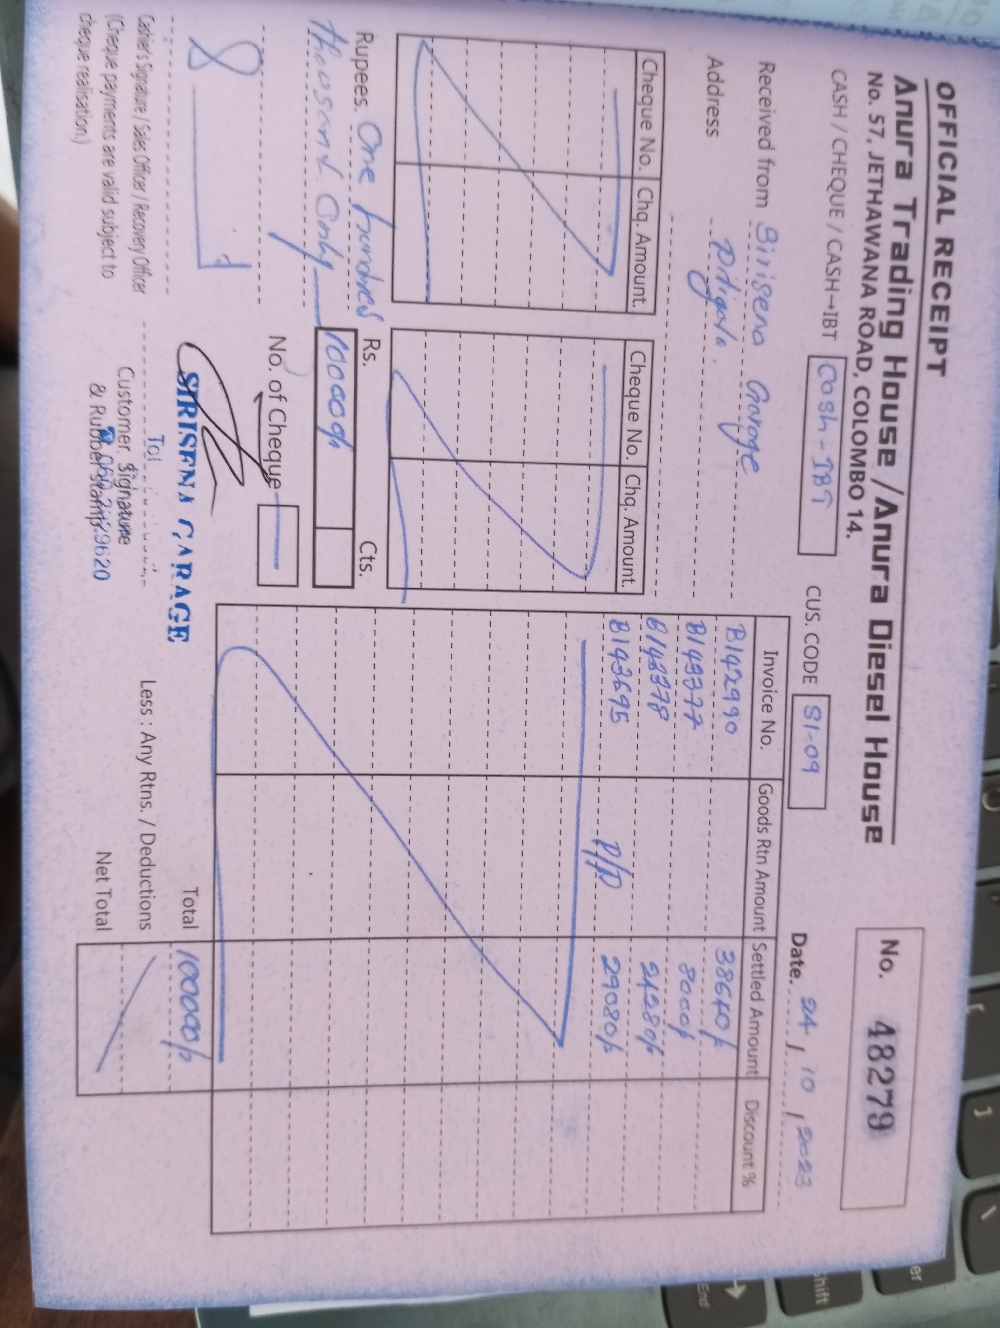 OFFICIAL RECEIPT
Anura Trading House / Anura Diesel House
No. 57, JETHAWANA ROAD, COLOMBO 14.
No. 48279
CASH / CHEQUE / CASH→IBT Cash - IBT
CUS. CODE S1-09
Date. 24 / 10 / 2023
Received from Sirisena Garage
Address Pitigala.
Cheque No. Chq. Amount. Cheque No. Chq. Amount.
Rupees. One hundred
thousand only
Rs. Cts.
100000/=
No. of Cheque
Invoice No. Goods Rtn Amount Settled Amount Discount %
B142990 38640/=
B143377 8000/=
B143378 24280/=
B143695 P/P 29080/=
Total 100000/=
Less : Any Rtns. / Deductions
Net Total
Cashier's Signature / Sales Officer / Recovery Officer
(Cheque payments are valid subject to
cheque realisation.)
SIRISENA GARAGE
Customer Signature
& Rubber Stamp